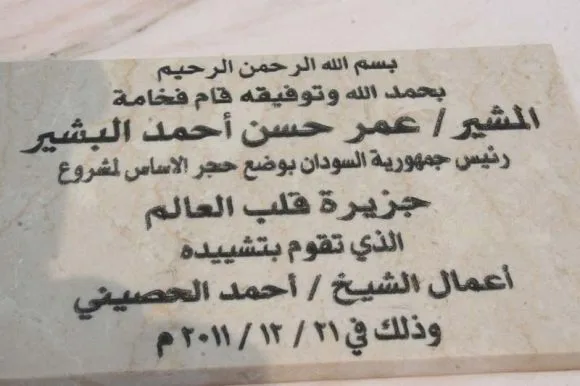 بسم الله الرحمن الرحيم
بحمد الله وتوفيقه قام فخامة
المشير / عمر حسن أحمد البشير
رئيس جمهورية السودان بوضع حجر الاساس لمشروع
جزيرة قلب العالم
الذي تقوم بتشييده
أعمال الشيخ / أحمد الحصيني
وذلك في ٢١ / ١٢ / ٢٠١١ م